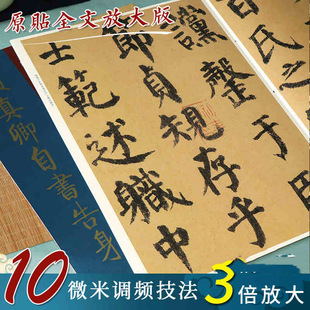 原貼全文放大版
百氏之
讜罄于臣
節貞規存乎
士範述職中
真卿自書告身
10微米调频技法 3倍放大